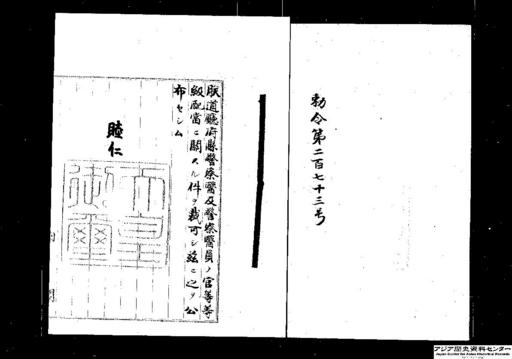 勅令第二百七十三号
朕道廳府縣警察醫及警察醫員ノ官等等
級配當ニ關スル件ヲ裁可シ茲ニ之ヲ公
布セシム
睦仁
天皇
御璽
アジア歴史資料センター
Japan Center for Asian Historical Records